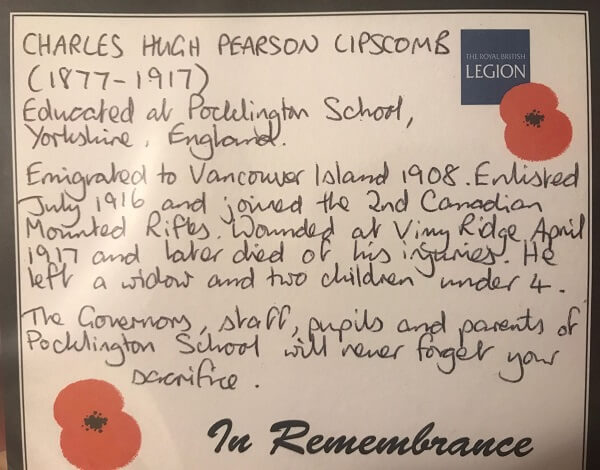 CHARLES HUGH PEARSON LIPSCOMB
(1877-1917)
THE ROYAL BRITISH
LEGION
Educated at Pocklington School,
Yorkshire, England.
Emigrated to Vancouver Island 1908. Enlisted
July 1916 and joined the 2nd Canadian
Mounted Rifles. Wounded at Vimy Ridge April
1917 and later died of his injuries. He
left a widow and two children under 4.
The Governors, staff, pupils and parents of
Pocklington School will never forget your
sacrifice.
In Remembrance